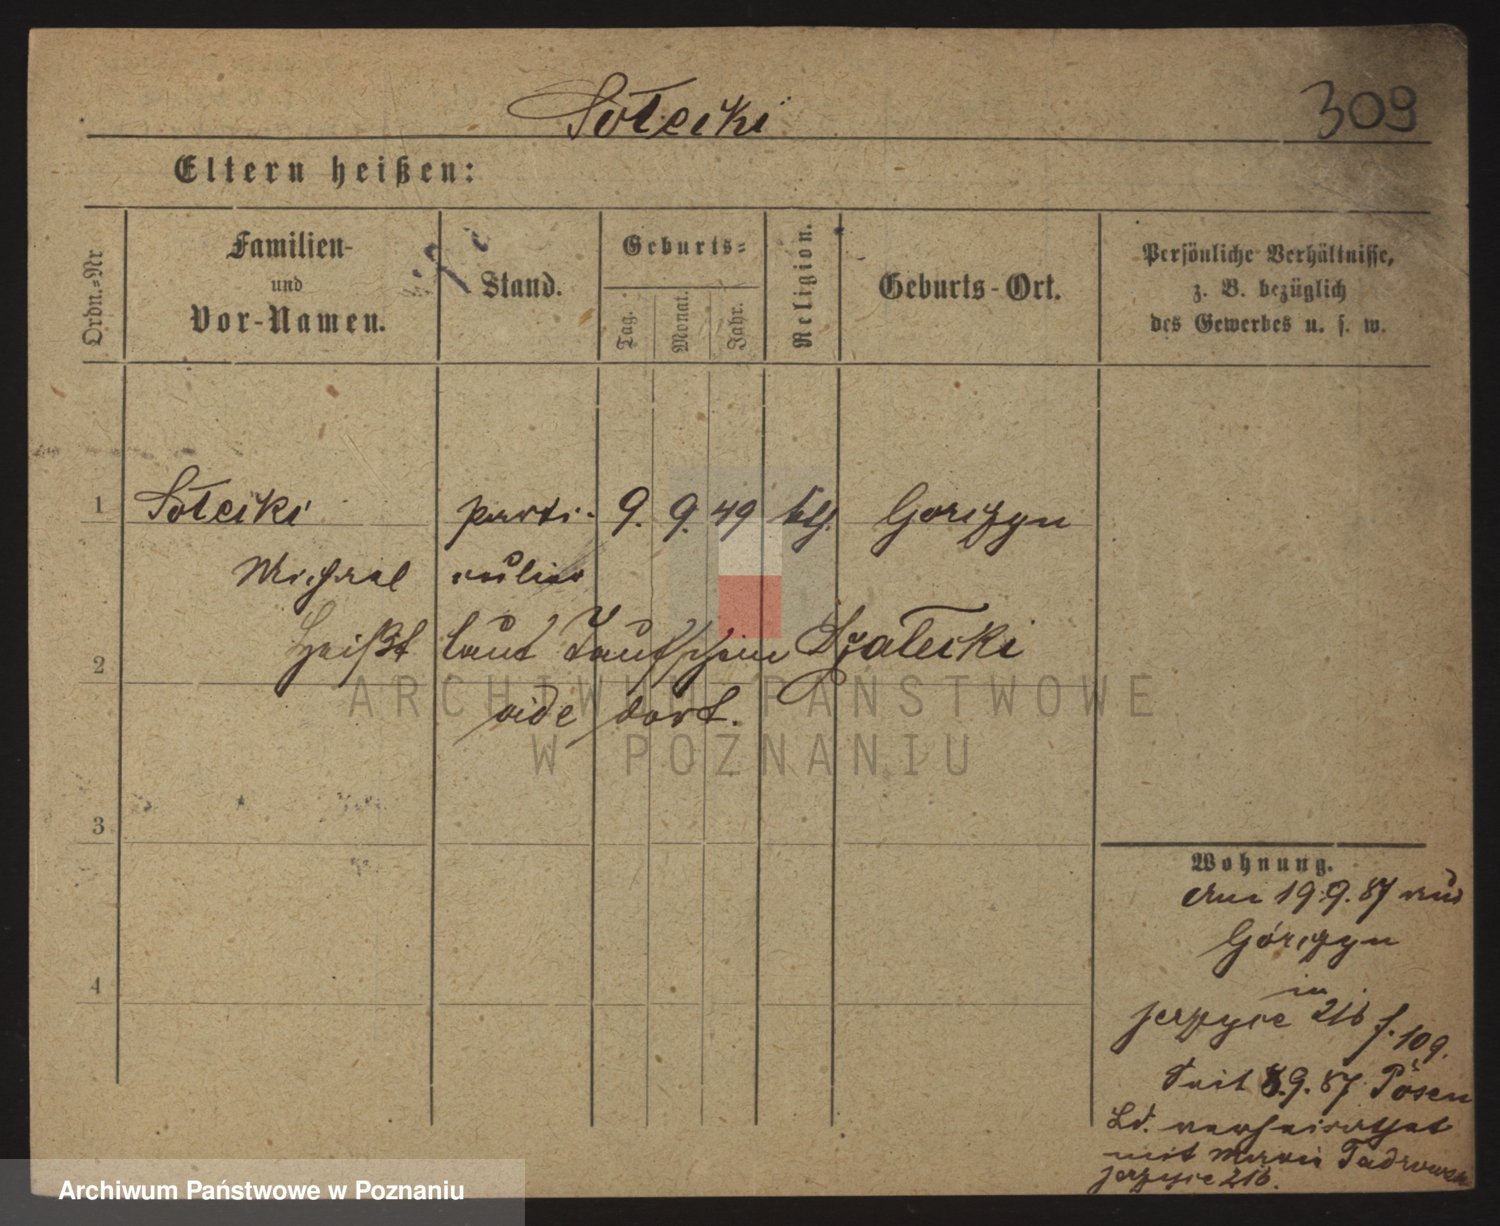 Sołecki
309
Eltern heißen:
Ordn.-Nr
Familien-
und
Vor-Namen.
Stand.
Geburts-
Tag.
Monat.
Jahr.
Religion.
Geburts-Ort.
Persönliche Verhältnisse,
z. B. bezüglich
des Gewerbes u. s. w.
1 Sołecki parti- 9. 9. 49 kth. Gorczyn
Michael culier
2 heißt laut Taufschein Szałecki
vide dort.
3
4
Wohnung.
Am 19.9.87 aus
Górczyn
in
Jerzyce 216 f. 109.
Seit 8.9.87 Posen
verheirathet
mit Maria
Jerzyce 216.
ARCHIWUM PAŃSTWOWE
W POZNANIU
Archiwum Państwowe w Poznaniu